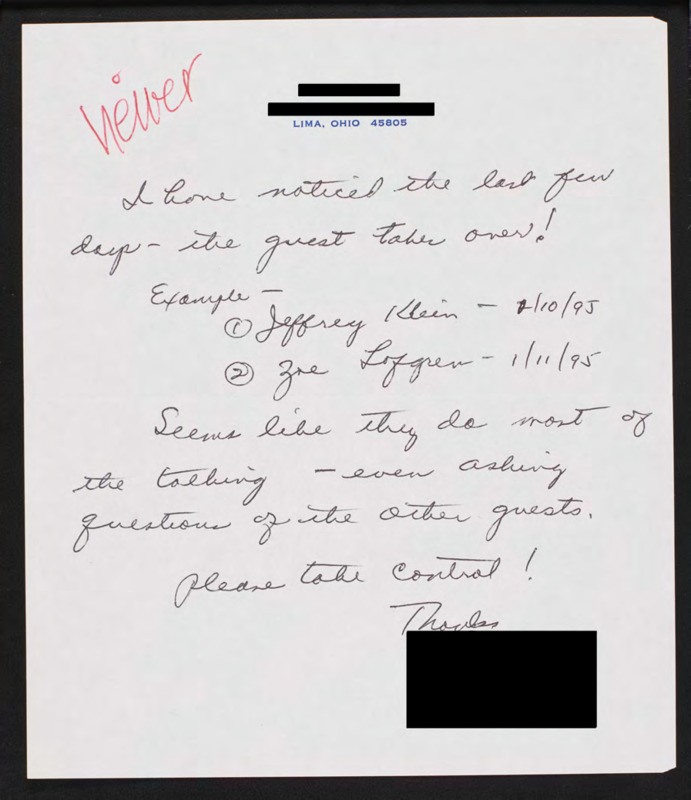 viewer
LIMA, OHIO 45805
I have noticed the last few
days - the guest takes over!
Example -
① Jeffrey Klein - 1/10/95
② Zoe Lofgren - 1/11/95
Seems like they do most of
the talking - even asking
questions of the other guests.
Please take control!
Thanks